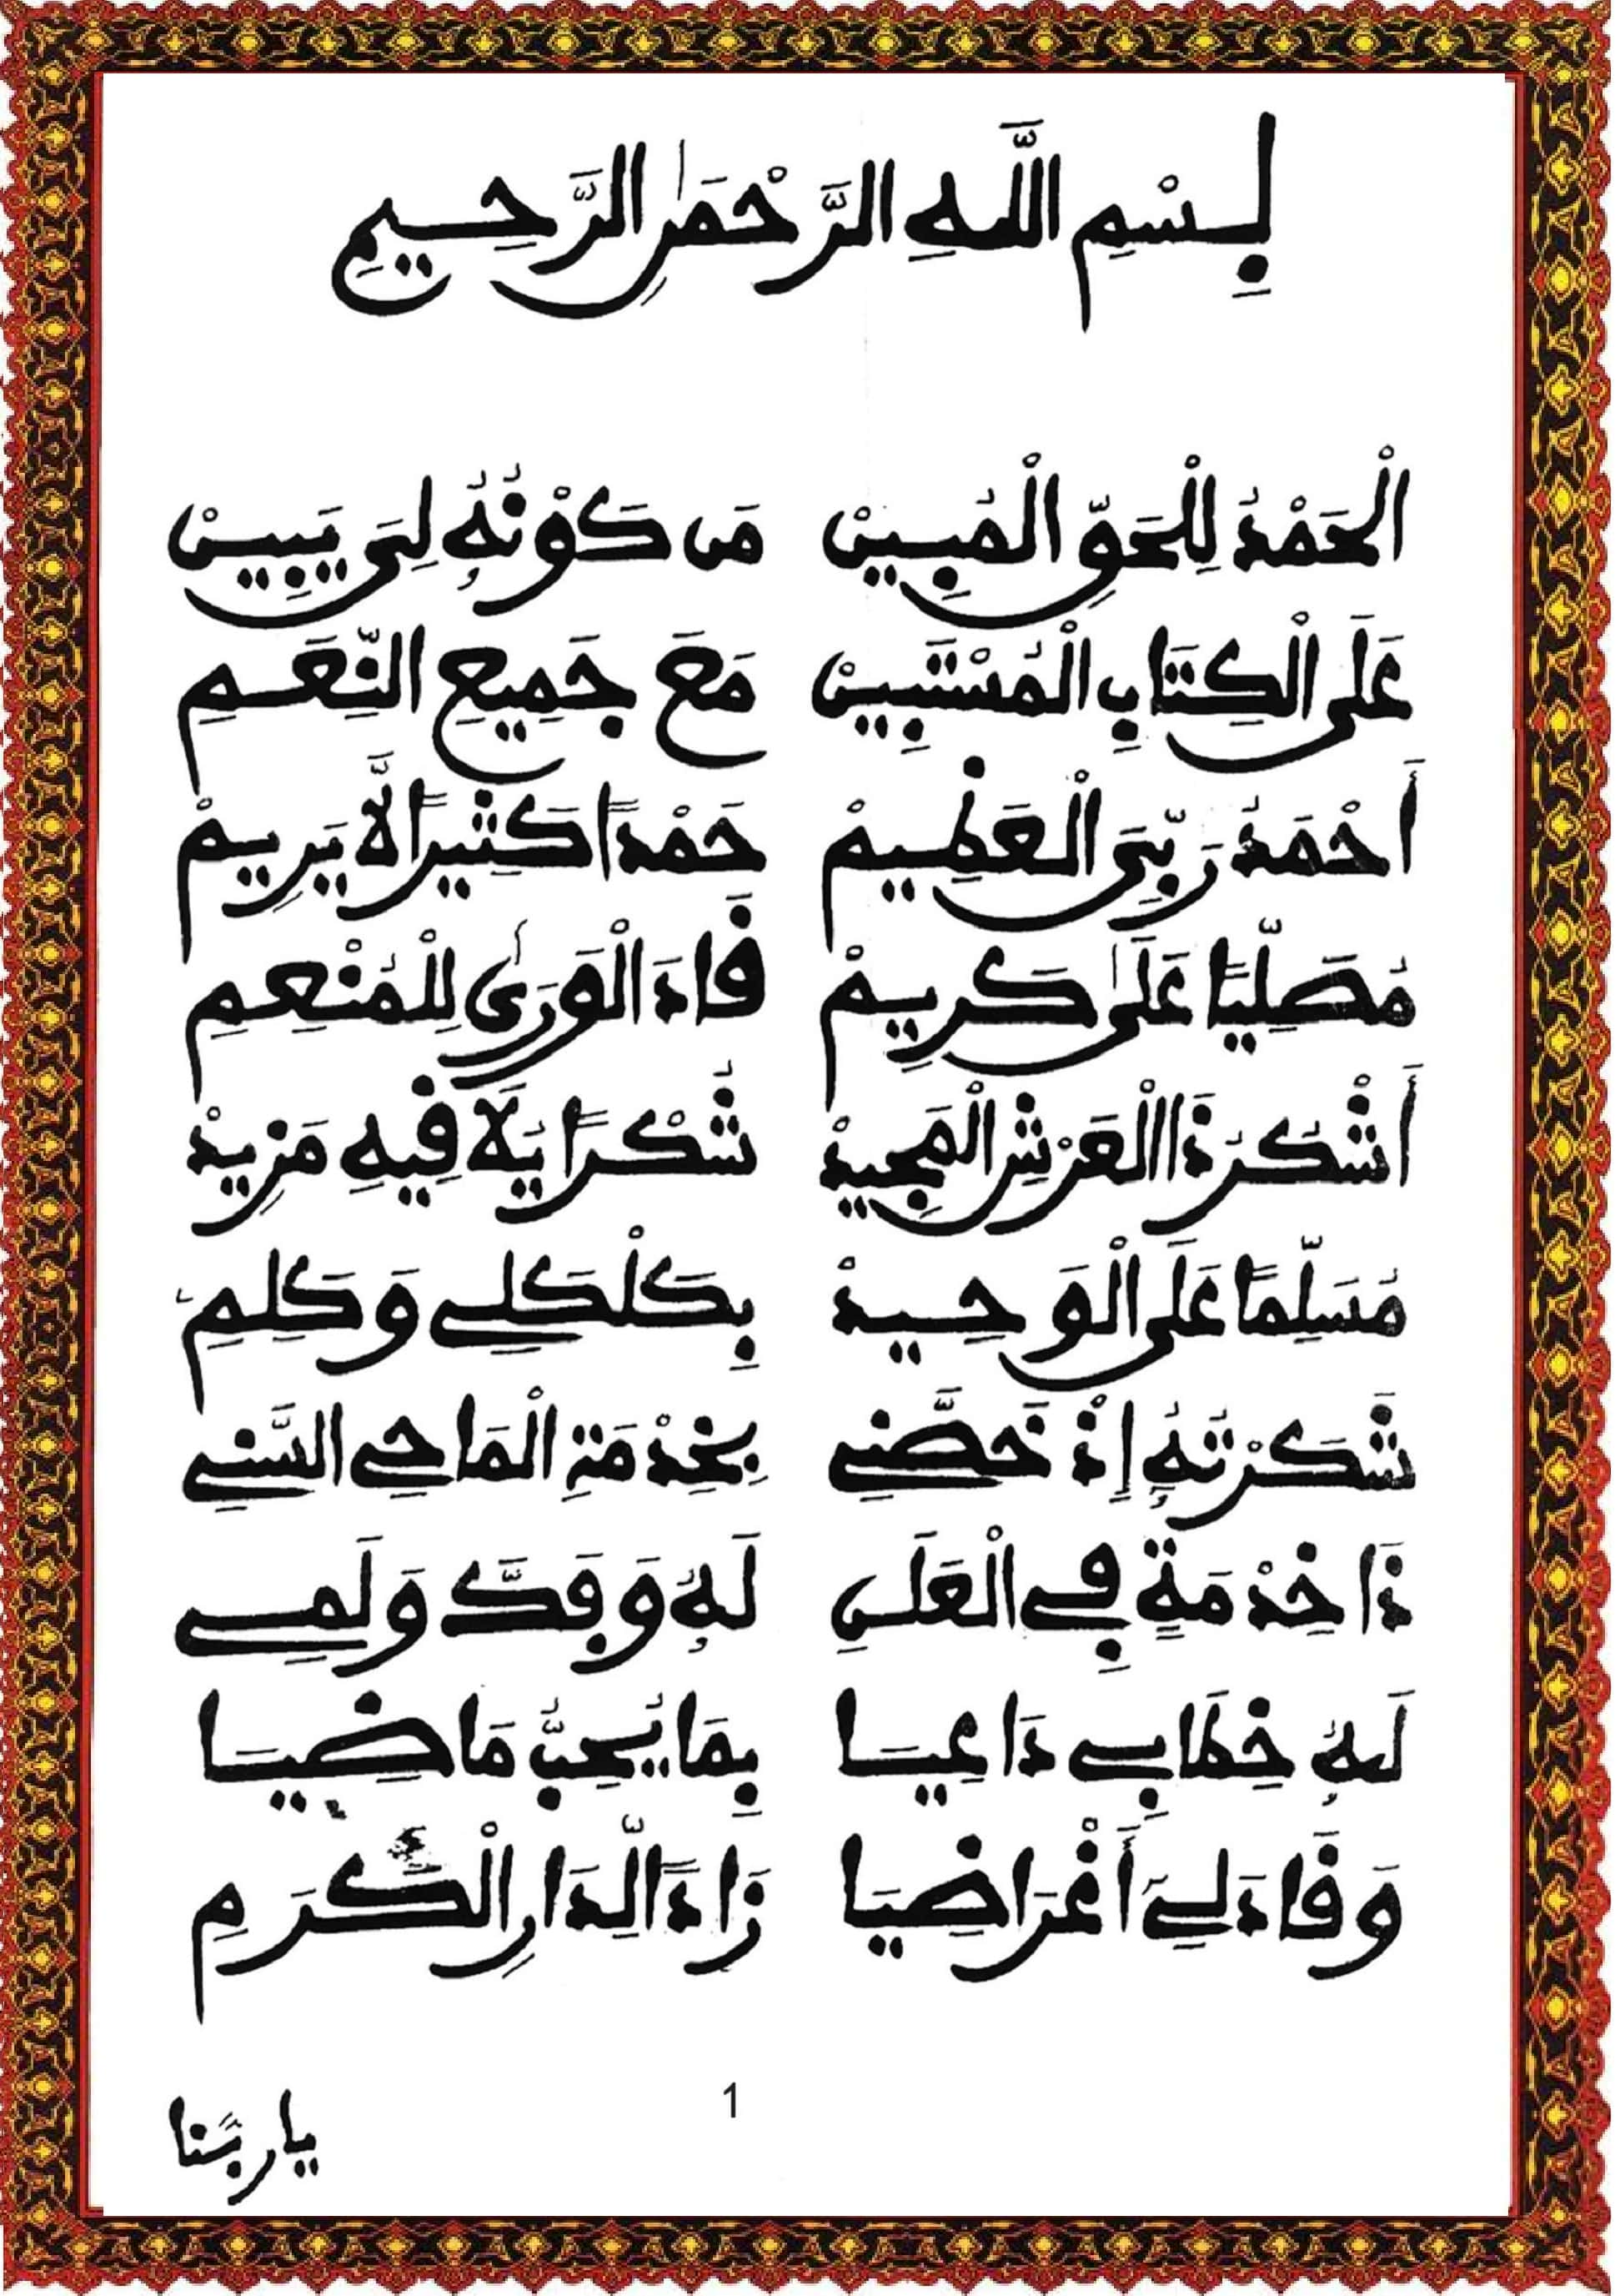 بِسْمِ اللَّهِ الرَّحْمَٰنِ الرَّحِيمِ
الْحَمْدُ لِلْحَقِّ الْمُبِينْ مَن كَوْنُهُ لِيَ يَبِينْ
عَلَى الْكِتَابِ الْمُسْتَبِينْ مَعَ جَمِيعِ النِّعَمِ
أَحْمَدُ رَبِّيَ الْعَظِيمْ حَمْدًا كَثِيرًا لَّا يَرِيمْ
مُصَلِّيًا عَلَىٰ كَرِيمْ قَادَ الْوَرَىٰ لِلْمُنْعِمِ
أَشْكُرُ ذَا الْعَرْشِ الْمَجِيدْ شُكْرًا يُلَافِيهِ مَزِيدْ
مُسَلِّمًا عَلَى الْوَحِيدْ بِكَلْكَلِي وَكَلِمِ
شَكَرْتُهُ إِذْ خَصَّنِي بِخِدْمَةِ الْمَاحِي السَّنِي
ذَا خِدْمَةٍ فِي الْعَلَنِ لَهُ وَفَكَّ وَلَمِي
لَهُ خِطَابِي دَاعِيَا بِمَا يُحِبُّ مَاضِيَا
وَقَادَ لِي أَغْرَاضِيَا زَادًا لِدَارِ الْكَرَمِ
1
يا ربنا